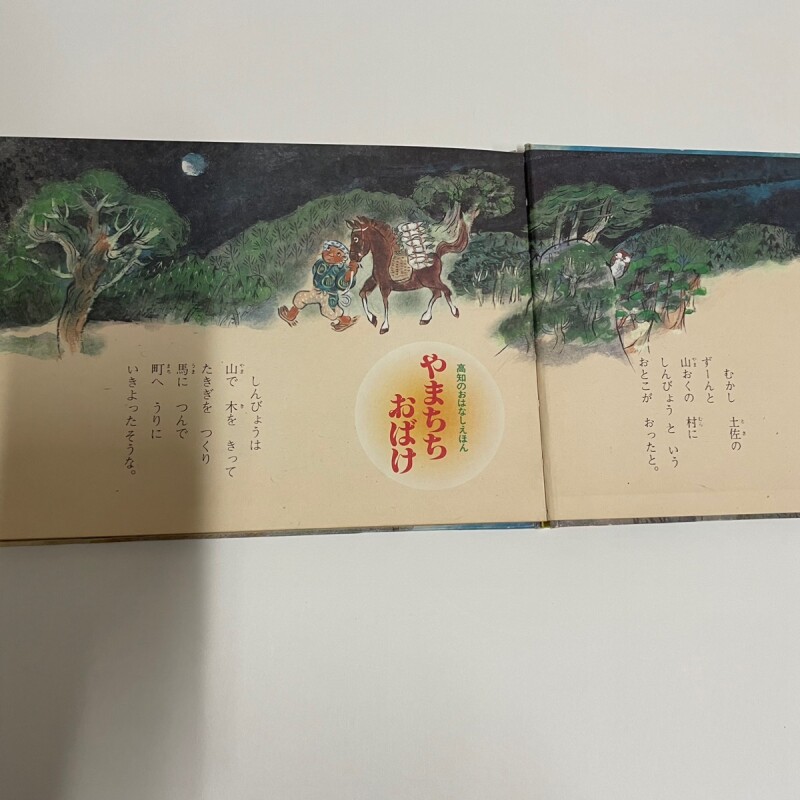 むかし 土佐の
ずーんと
山おくの 村に
しんぴょう と いう
おとこが おったと。
高知のおはなしえほん
やまちち
おばけ
しんぴょうは
山で 木を きって
たきぎを つくり
馬に つんで
町へ うりに
いきよったそうな。